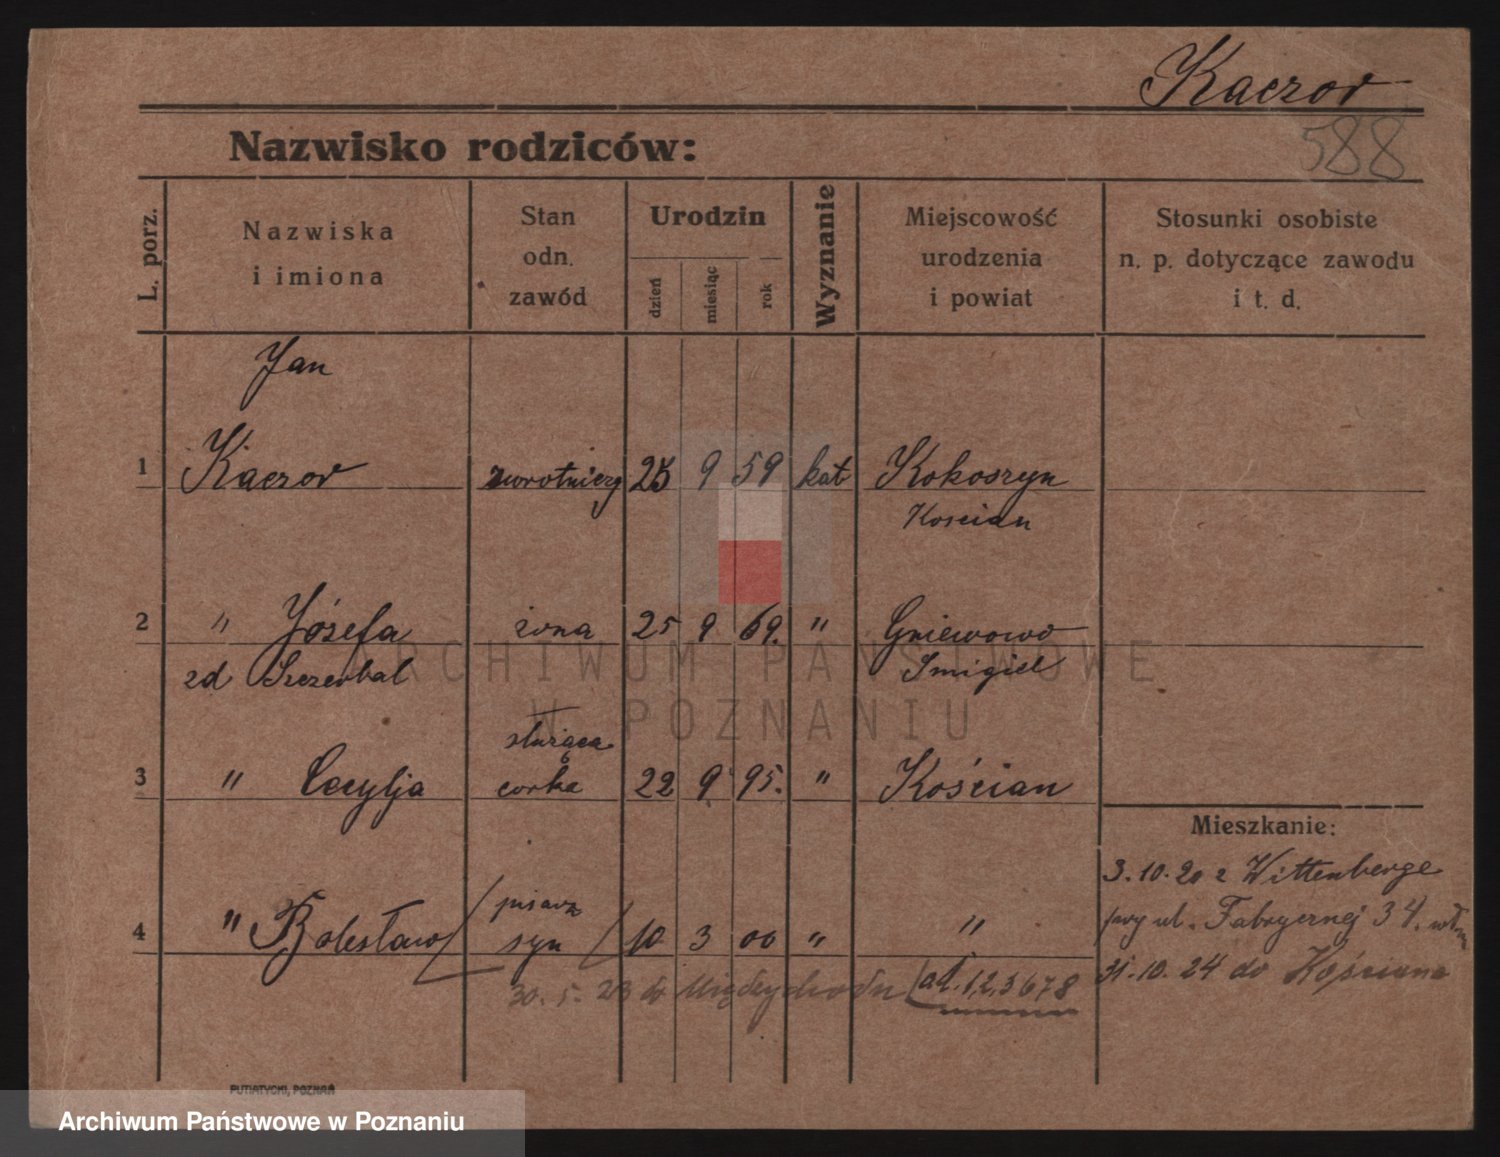 Kaczor
588
Nazwisko rodziców:
L. porz.
Nazwiska
i imiona
Stan
odn.
zawód
Urodzin
dzień
miesiąc
rok
Wyznanie
Miejscowość
urodzenia
i powiat
Stosunki osobiste
n. p. dotyczące zawodu
i t. d.
Jan
1 Kaczor zwrotniczy 25 9 59 kat Kokoszyn
Kościan
2 " Józefa żona 25 9 69. " Gniewowo
zd Szczerbal Śmigiel
służąca
3 " Cecylja corka 22 9 95. " Kościan
Mieszkanie:
3.10.20 z Wittenberge
pisarz
przy ul. Fabrycznej 34.
4 " Bolesław syn 10 3 00 " "
31.10.24 do Kościana
30.5.23 do Międzychodu
ad. 1,2,3 6 7 8
PUTIATYCKI, POZNAŃ
ARCHIWUM PAŃSTWOWE
W POZNANIU
Archiwum Państwowe w Poznaniu